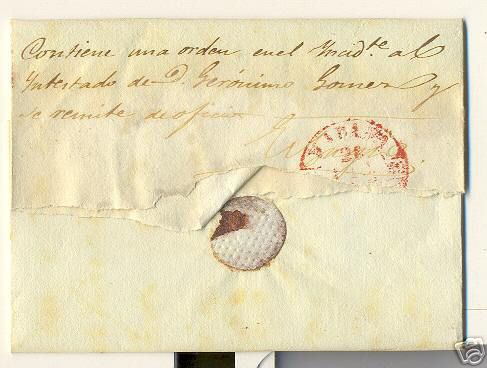 Contiene una orden en el Yncid.te al
Intestado de D. Gerónimo Gomez y
se remite de oficio